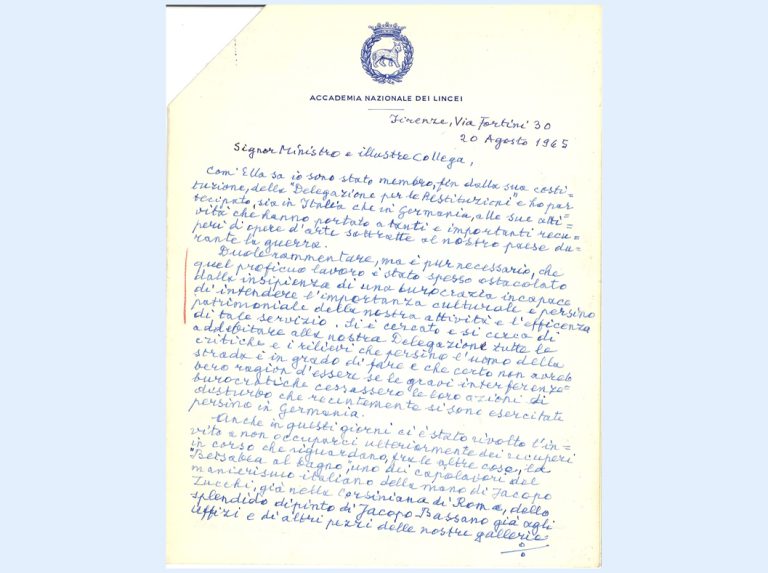 ACCADEMIA NAZIONALE DEI LINCEI
Firenze, Via Fortini 30
20 Agosto 1965
Signor Ministro e illustre Collega,
Com' Ella sa io sono stato membro, fin dalla sua costi=
tuzione, della "Delegazione per le Restituzioni" e ho par
tecipato, sia in Italia che in Germania, alle sue atti=
vità che hanno portato a tanti e importanti recu=
peri di opere d'arte sottratte al nostro paese du=
rante la guerra.
Duole rammentare, ma è pur necessario, che
quel proficuo lavoro è stato spesso ostacolato
dalla insipienza di una burocrazia incapace
d'intendere l'importanza culturale e persino
patrimoniale della nostra attività e l'efficenza
di tale servizio. Si è cercato e si cerca di
addebitare alla nostra Delegazione tutte le
critiche e i rilievi che persino l'uomo della
strada è in grado di fare e che certo non avreb
bero ragion d'essere se le gravi interferenze
burocratiche cessassero le loro azioni di
disturbo che recentemente si sono esercitate
persino in Germania.
Anche in questi giorni ci è stato rivolto l'in=
vito a non occuparci ulteriormente dei recuperi
in corso che riguardano, fra le altre cose, la
"Betsabea al bagno", uno dei capolavori del
manierismo italiano della mano di Jacopo
Zucchi, già nella Corsiniana di Roma, dello
splendido dipinto di Jacopo Bassano già agli
Uffizi e di altri pezzi delle nostre gallerie